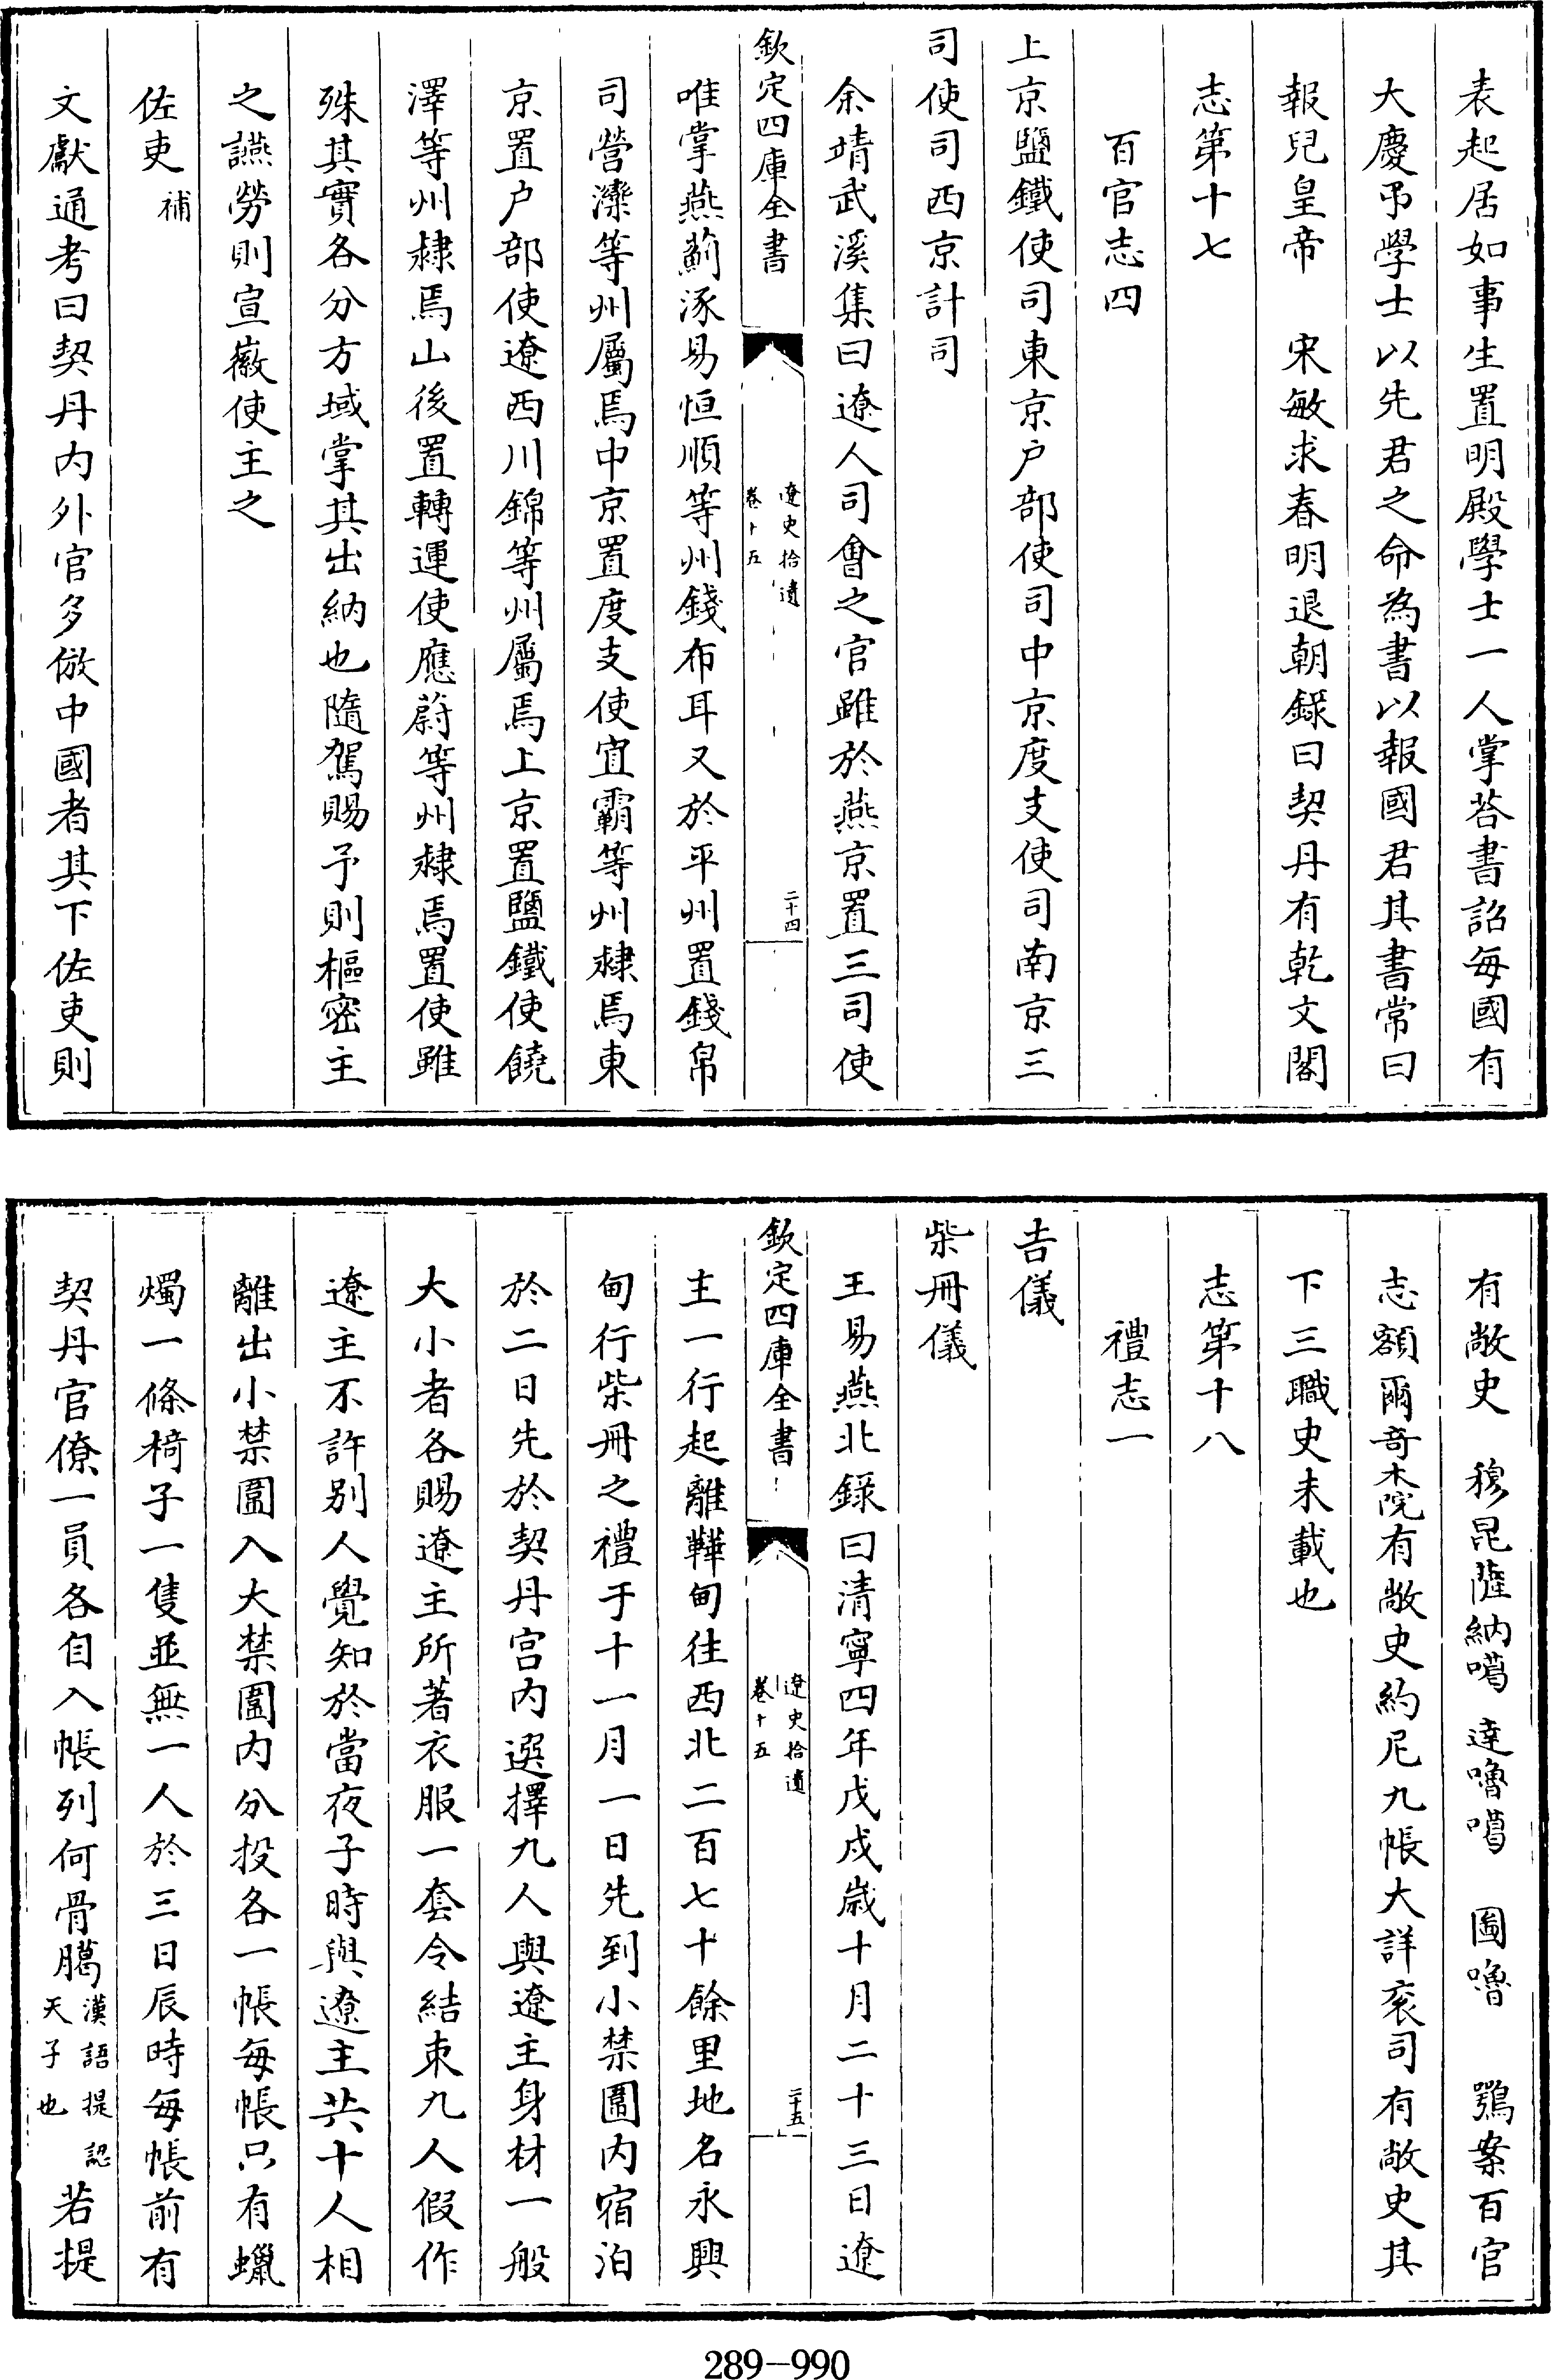 表起居如事生置明殿學士一人掌荅書詔每國有
大慶弔學士以先君之命為書以報國君其書常曰
報兒皇帝　宋敏求春明退朝錄曰契丹有乾文閣
志第十七
百官志四
上京鹽鐵使司東京户部使司中京度支使司南京三
司使司西京計司
余靖武溪集曰遼人司會之官雖於燕京置三司使
欽定四庫全書
遼史拾遺
卷十五
二十四
唯掌燕薊涿易恒順等州錢布耳又於平州置錢帛
司營灤等州屬焉中京置度支使宜霸等州隸焉東
京置户部使遼西川錦等州屬焉上京置鹽鐵使饒
澤等州隸焉山後置轉運使應蔚等州隸焉置使雖
殊其實各分方域掌其出納也隨駕賜予則樞密主
之讌勞則宣徽使主之
佐吏補
文獻通考曰契丹内外官多倣中國者其下佐吏則
有敞史　穆昆薩納噶　達嚕噶　圖嚕　鶚案百官
志額爾竒木院有敞史約尼九帳大詳衮司有敞史其
下三職史未載也
志第十八
禮志一
吉儀
柴冊儀
王易燕北錄曰清寧四年戊戌歲十月二十三日遼
欽定四庫全書
遼史拾遺
卷十五
二十五
主一行起離鞾甸往西北二百七十餘里地名永興
甸行柴冊之禮于十一月一日先到小禁圍内宿泊
於二日先於契丹宫内選擇九人與遼主身材一般
大小者各賜遼主所著衣服一套令結束九人假作
遼主不許别人覺知於當夜子時與遼主共十人相
離出小禁圍入大禁圍内分投各一帳每帳只有蠟
燭一條椅子一隻並無一人於三日辰時每帳前有
契丹官僚一員各自入帳列何骨臈漢語提認天子也若提
289-990